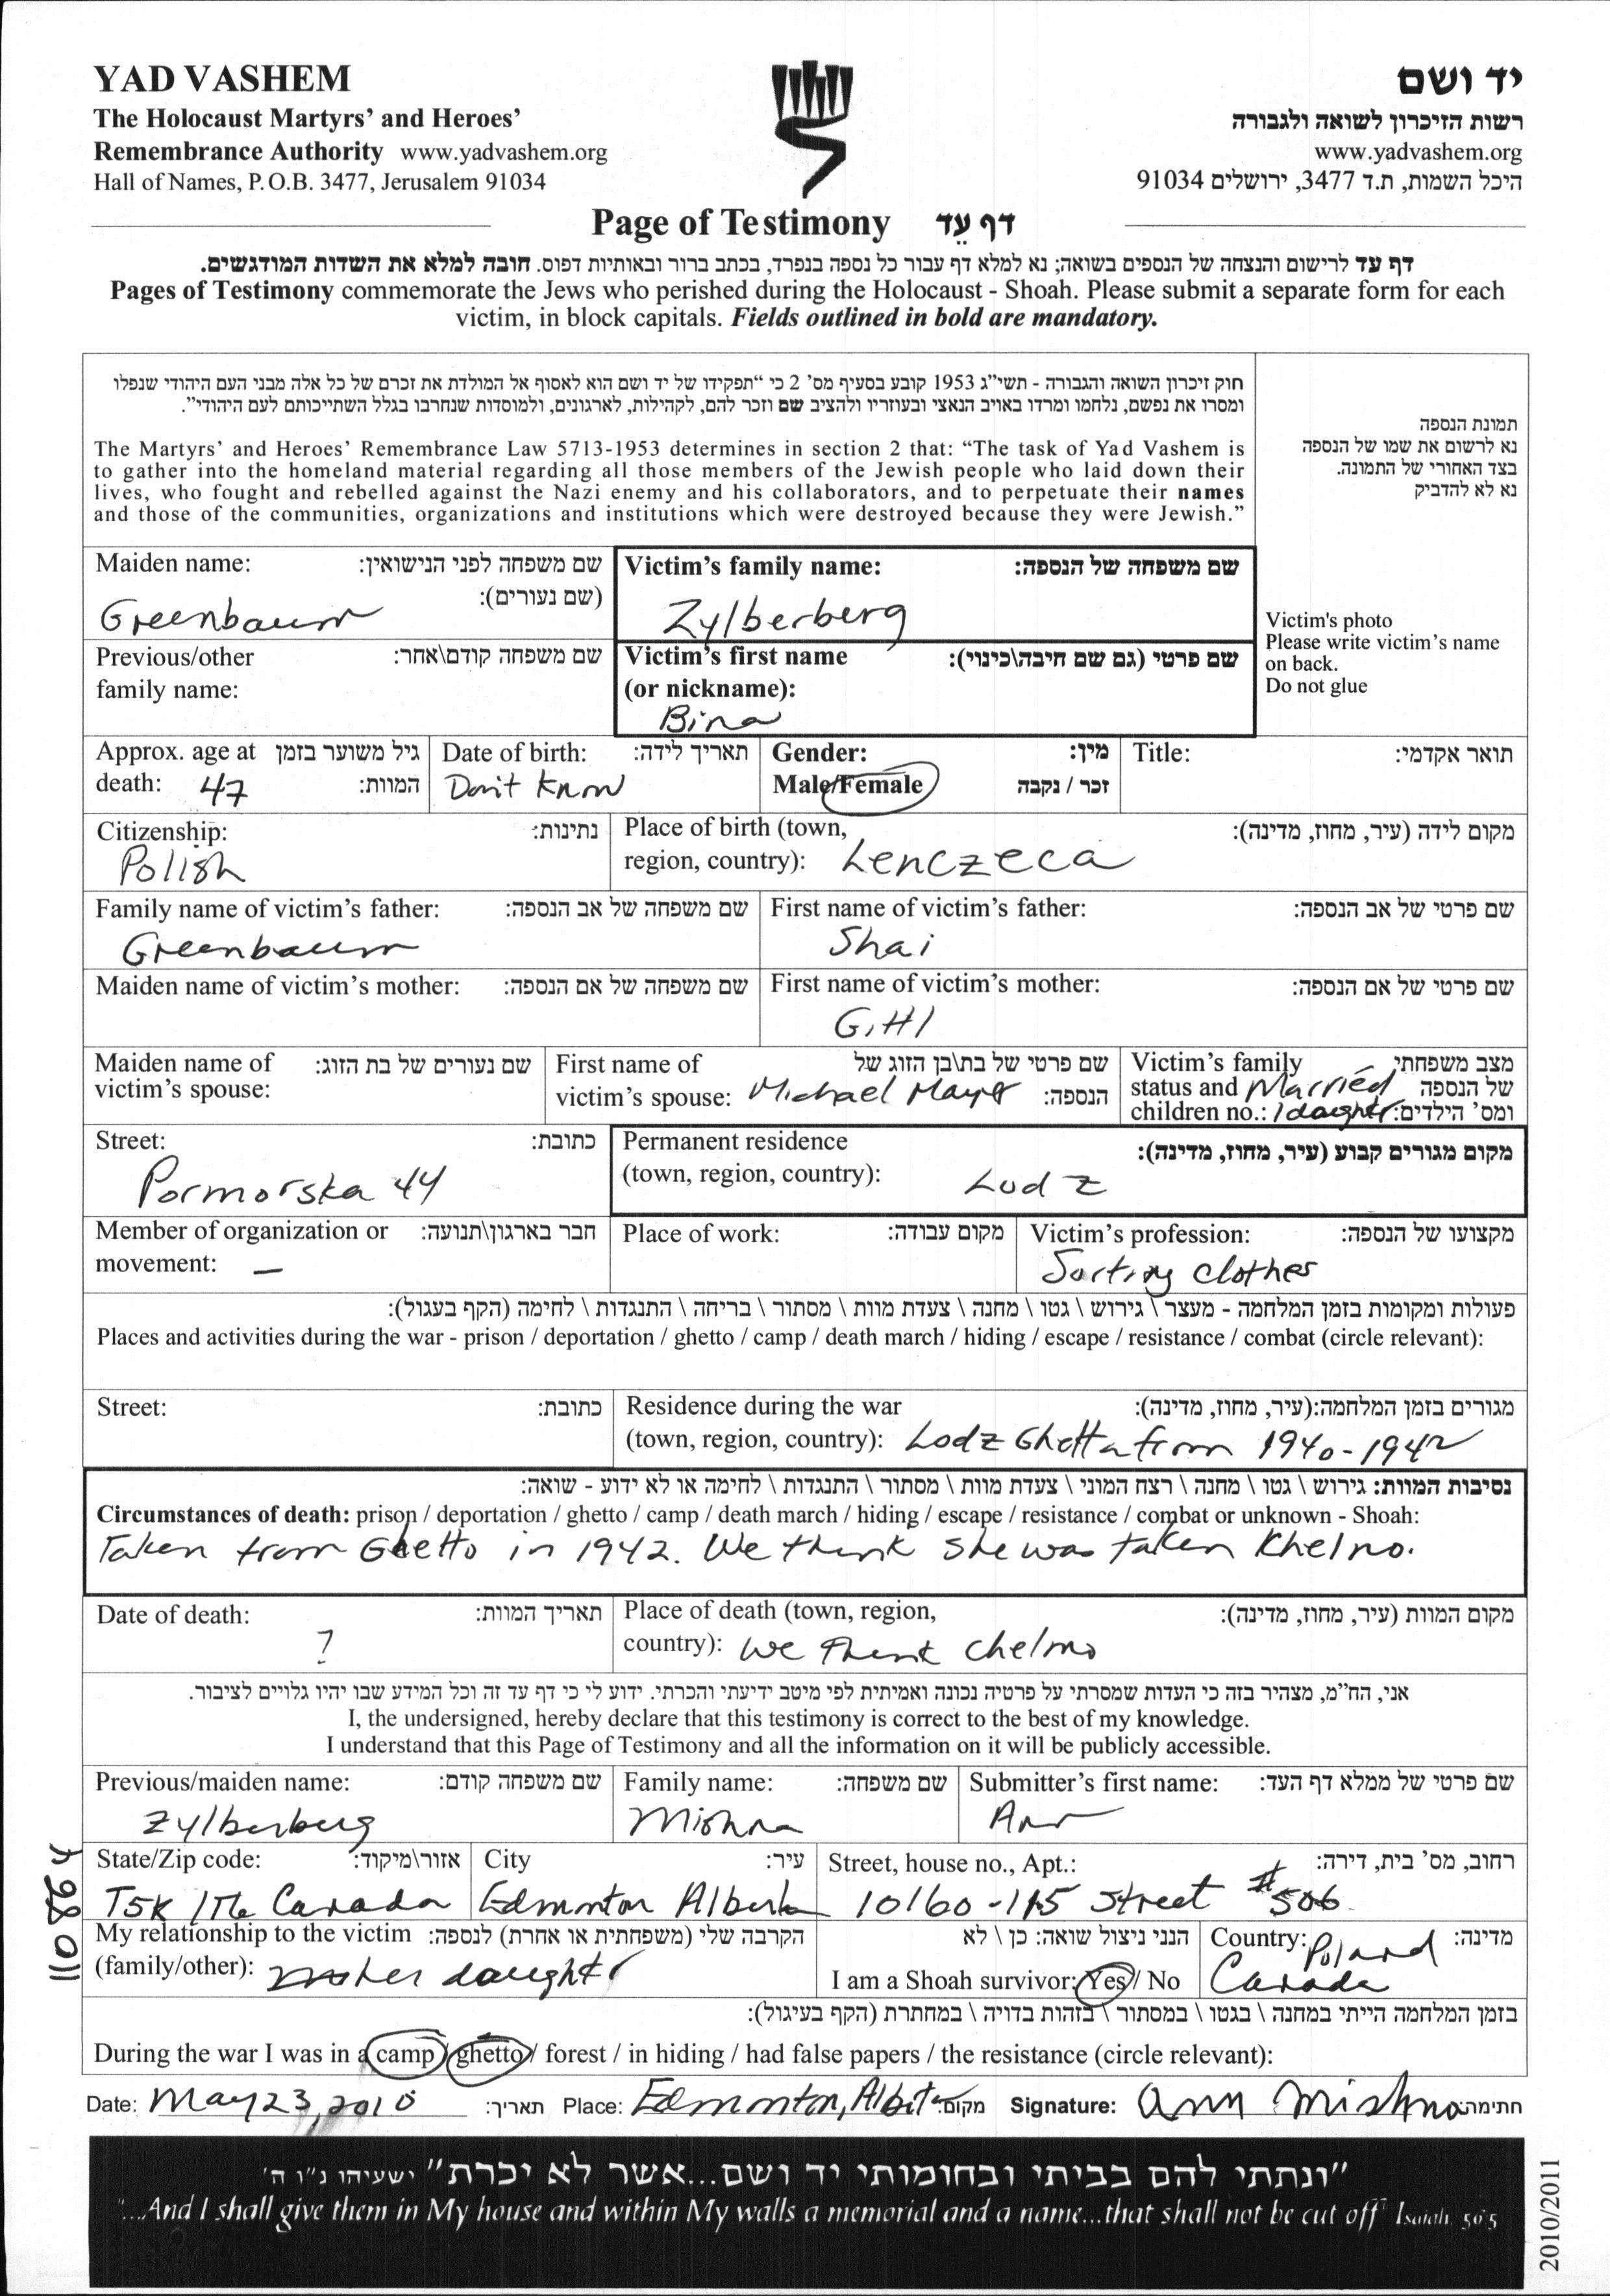 YAD VASHEM
The Holocaust Martyrs' and Heroes'
Remembrance Authority www.yadvashem.org
Hall of Names, P.O.B. 3477, Jerusalem 91034
יד ושם
רשות הזיכרון לשואה ולגבורה
www.yadvashem.org
היכל השמות, ת.ד 3477, ירושלים 91034
Page of Testimony דף עֵד
דף עד לרישום והנצחה של הנספים בשואה; נא למלא דף עבור כל נספה בנפרד, בכתב ברור ובאותיות דפוס. חובה למלא את השדות המודגשים.
Pages of Testimony commemorate the Jews who perished during the Holocaust - Shoah. Please submit a separate form for each
victim, in block capitals. Fields outlined in bold are mandatory.
חוק זיכרון השואה והגבורה - תשי"ג 1953 קובע בסעיף מס' 2 כי "תפקידו של יד ושם הוא לאסוף אל המולדת את זכרם של כל אלה מבני העם היהודי שנפלו
ומסרו את נפשם, נלחמו ומרדו באויב הנאצי ובעוזריו ולהציב שם וזכר להם, לקהילות, לארגונים, ולמוסדות שנחרבו בגלל השתייכותם לעם היהודי".
The Martyrs' and Heroes' Remembrance Law 5713-1953 determines in section 2 that: "The task of Yad Vashem is
to gather into the homeland material regarding all those members of the Jewish people who laid down their
lives, who fought and rebelled against the Nazi enemy and his collaborators, and to perpetuate their names
and those of the communities, organizations and institutions which were destroyed because they were Jewish."
תמונת הנספה
נא לרשום את שמו של הנספה
בצד האחורי של התמונה.
נא לא להדביק
Victim's photo
Please write victim's name
on back.
Do not glue
Maiden name: שם משפחה לפני הנישואין:
(שם נעורים):
Greenbaum
Victim's family name: שם משפחה של הנספה:
Zylberberg
Previous/other שם משפחה קודם\אחר:
family name:
Victim's first name שם פרטי (גם שם חיבה\כינוי):
(or nickname):
Bina
Approx. age at גיל משוער בזמן
death: 47 המוות:
Date of birth: תאריך לידה:
Don't know
Gender: מין:
Male/Female זכר / נקבה
Title: תואר אקדמי:
Citizenship: נתינות:
Polish
Place of birth (town, מקום לידה (עיר, מחוז, מדינה):
region, country): Lenczeca
Family name of victim's father: שם משפחה של אב הנספה:
Greenbaum
First name of victim's father: שם פרטי של אב הנספה:
Shai
Maiden name of victim's mother: שם משפחה של אם הנספה:
First name of victim's mother: שם פרטי של אם הנספה:
Gittl
Maiden name of שם נעורים של בת הזוג:
victim's spouse:
First name of שם פרטי של בת\בן הזוג של
victim's spouse: Michael Mayer הנספה:
Victim's family מצב משפחתי
status and Married של הנספה
children no.: 1 daughter ומס' הילדים:
Street: כתובת:
Pormorska 44
Permanent residence מקום מגורים קבוע (עיר, מחוז, מדינה):
(town, region, country): Lodz
Member of organization or חבר בארגון\תנועה:
movement: —
Place of work: מקום עבודה:
Victim's profession: מקצועו של הנספה:
Sorting clothes
פעולות ומקומות בזמן המלחמה - מעצר \ גירוש \ גטו \ מחנה \ צעדת מוות \ מסתור \ בריחה \ התנגדות \ לחימה (הקף בעגול):
Places and activities during the war - prison / deportation / ghetto / camp / death march / hiding / escape / resistance / combat (circle relevant):
Street: כתובת:
Residence during the war מגורים בזמן המלחמה:(עיר, מחוז, מדינה):
(town, region, country): Lodz Ghetto from 1940-1942
נסיבות המוות: גירוש \ גטו \ מחנה \ רצח המוני \ צעדת מוות \ מסתור \ התנגדות \ לחימה או לא ידוע - שואה:
Circumstances of death: prison / deportation / ghetto / camp / death march / hiding / escape / resistance / combat or unknown - Shoah:
Taken from Ghetto in 1942. We think she was taken Khelno.
Date of death: תאריך המוות:
?
Place of death (town, region, מקום המוות (עיר, מחוז, מדינה):
country): We think Chelmo
אני, הח"מ, מצהיר בזה כי העדות שמסרתי על פרטיה נכונה ואמיתית לפי מיטב ידיעתי והכרתי. ידוע לי כי דף עד זה וכל המידע שבו יהיו גלויים לציבור.
I, the undersigned, hereby declare that this testimony is correct to the best of my knowledge.
I understand that this Page of Testimony and all the information on it will be publicly accessible.
Previous/maiden name: שם משפחה קודם:
Zylberberg
Family name: שם משפחה:
Mishna
Submitter's first name: שם פרטי של ממלא דף העד:
Ann
State/Zip code: אזור\מיקוד:
T5K Canada
City עיר:
Edmonton Alberta
Street, house no., Apt.: רחוב, מס' בית, דירה:
10160-115 Street #506
My relationship to the victim הקרבה שלי (משפחתית או אחרת) לנספה:
(family/other): daughter
הנני ניצול שואה: כן \ לא
I am a Shoah survivor: Yes / No
Country: Poland מדינה:
Canada
בזמן המלחמה הייתי במחנה \ בגטו \ במסתור \ בזהות בדויה \ במחתרת (הקף בעיגול):
During the war I was in a camp / ghetto / forest / in hiding / had false papers / the resistance (circle relevant):
Date: May 23, 2010 תאריך: Place: Edmonton, Alberta מקום: Signature: Ann Mishna חתימה:
"ונתתי להם בביתי ובחומותי יד ושם...אשר לא יכרת" ישעיהו נ"ו ה'
"...And I shall give them in My house and within My walls a memorial and a name...that shall not be cut off" Isaiah, 56:5
2010/2011